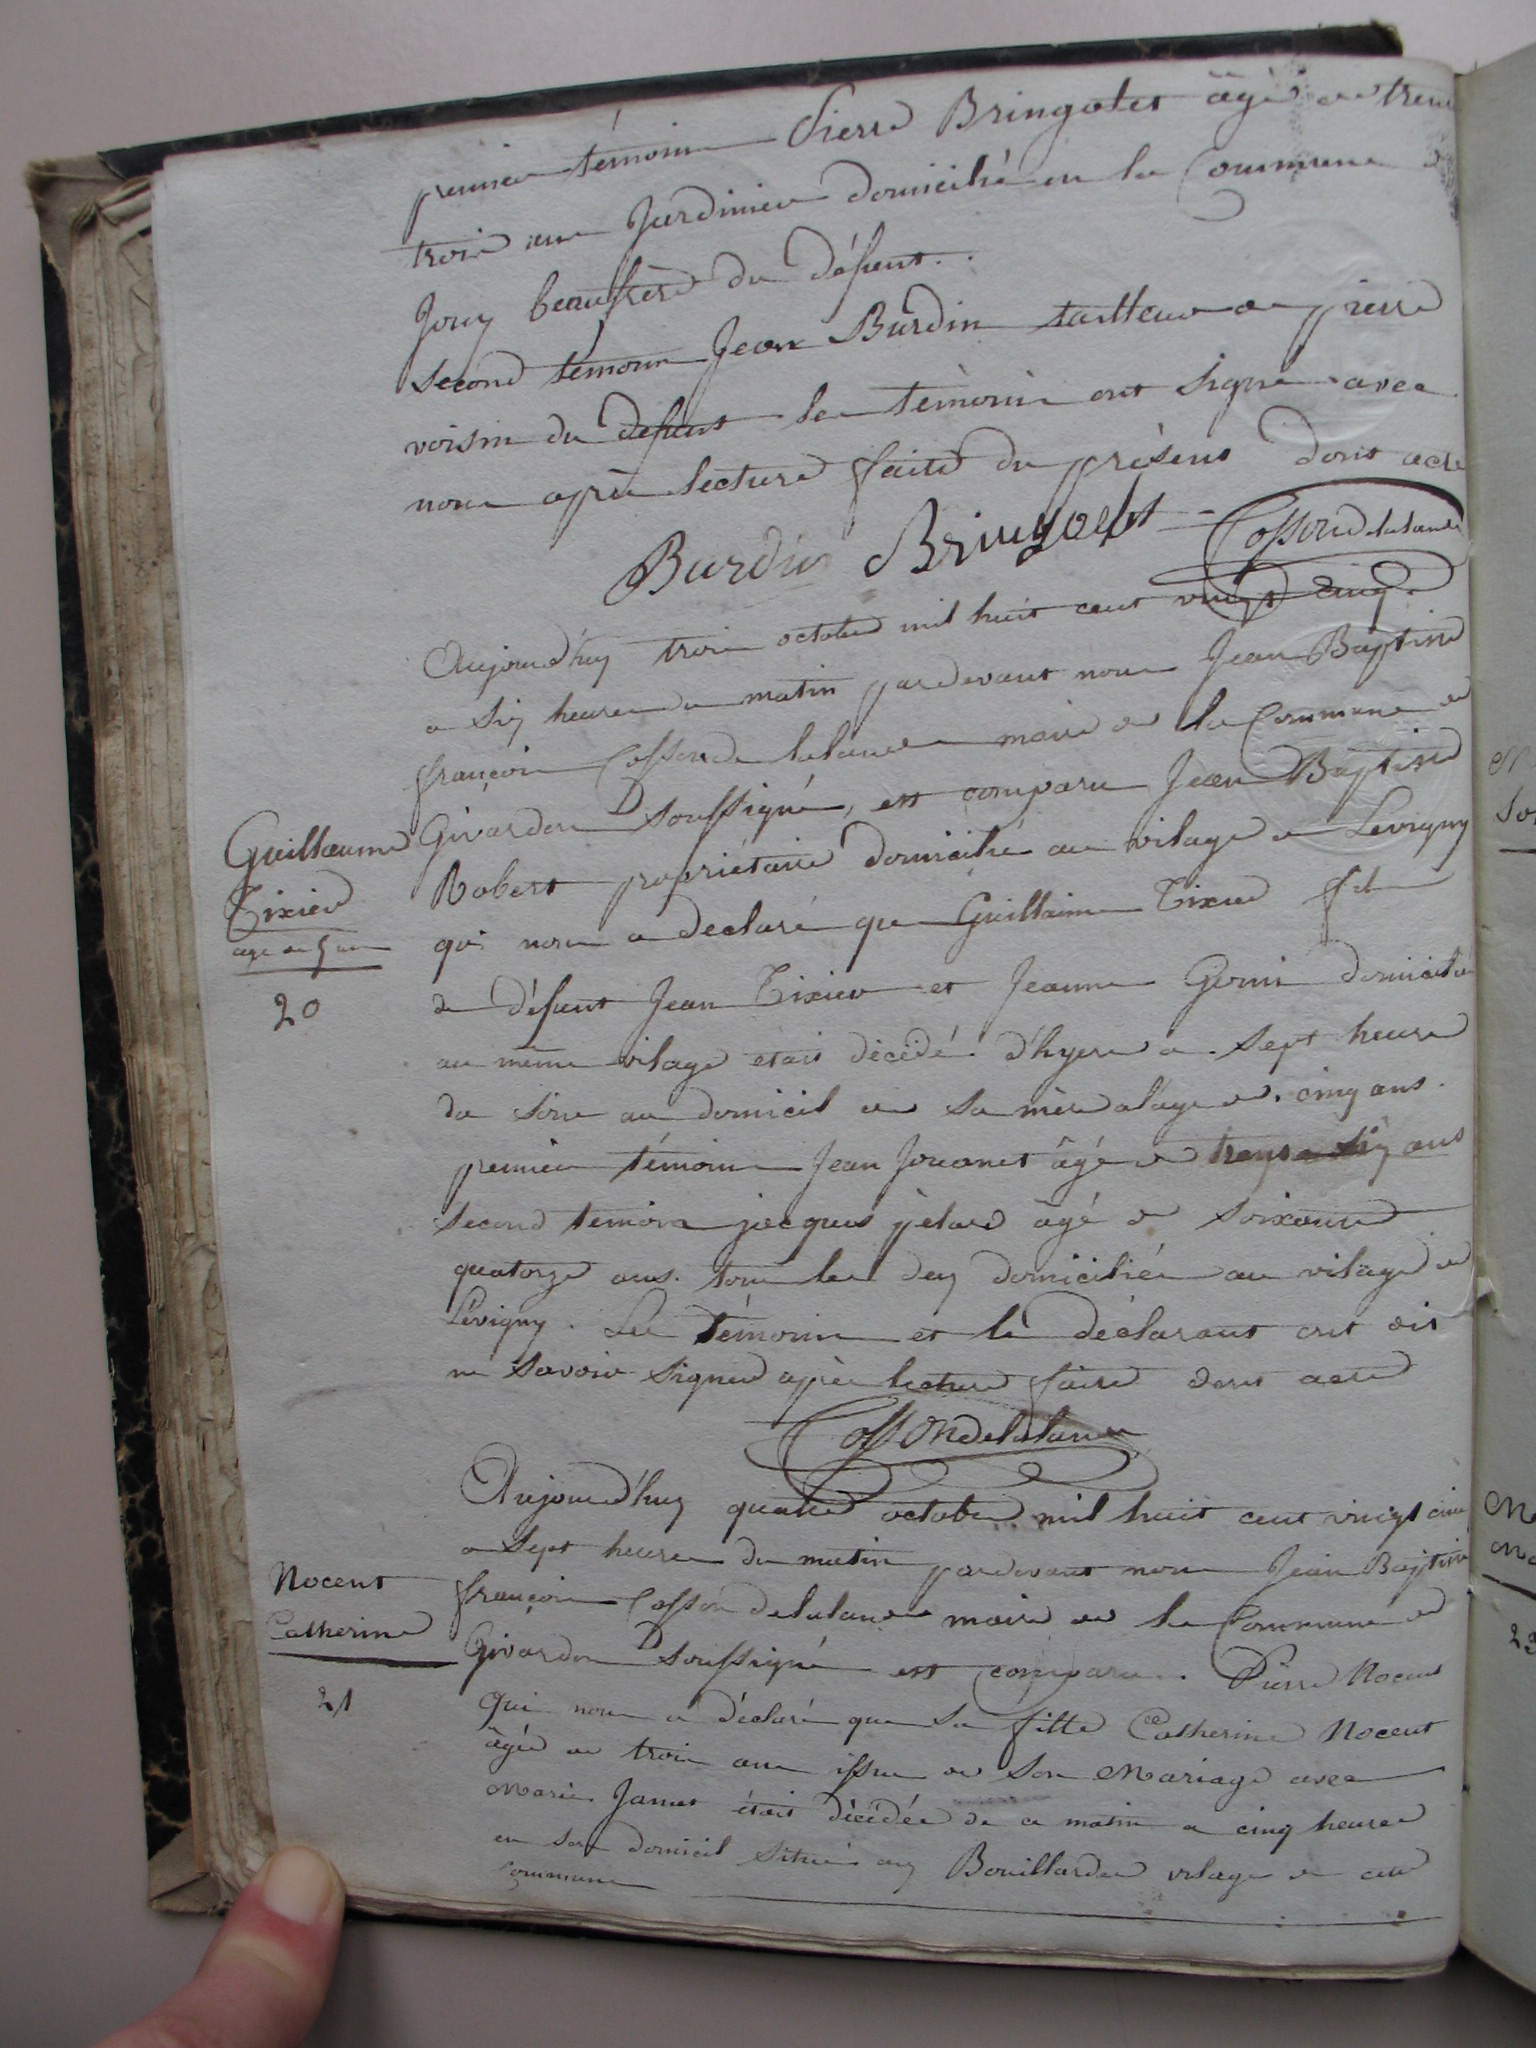 premier témoin Pierre Bringolet âgé de trente
trois ans Jardinier domicilié en la Commune de
Jouy beaufrere du défunt.
second témoin Jean Burdin tailleur de pierre
voisin du defunt les témoins ont signé avec
nous après lecture faite du présent dont acte
Burdin Bringolet Cosson delalande
Aujourd'huy trois octobre mil huit cent vingt cinq.
a six heures du matin pardevant nous Jean Baptiste
françois Cosson de lalande maire de la Commune de
Givardon soussigné, est comparu Jean Baptiste
Guillaume
Tixier
age de 5 ans
20
Robert propriétaire domicilié au vilage de Levigny
qui nous a declaré que Guillaume Tixier fils
de défunt Jean Tixier et Jeanne domicilié
au même vilage étais décédé d'hyer a sept heure
du soir au domicil de sa mère alage de cinq ans.
premier témoin Jean Jouanet âgé de ans
second temoin jacques pelard âgé de soixante
quatorze ans. tous les deux domiciliés au vilage de
Lévigny. Les témoins et le déclarant ont dit
ne savoir signer après lecture faite dont acte
Cosson delalande
Aujourd'huy quatre octobre mil huit cent vingt cinq
a sept heures du matin pardevant nous Jean Baptiste
Nocent
Catherine
21
françois Cosson delalande maire de la Commune de
Givardon soussigné est comparu. Pierre Nocent
qui nous a déclaré que sa fille Catherine Nocent
âgée de trois ans issue de son Mariage avec
Marie Jamet était décédée de ce matin a cinq heures
en son domicil situé aux Bouillardes vilage de cette
commune